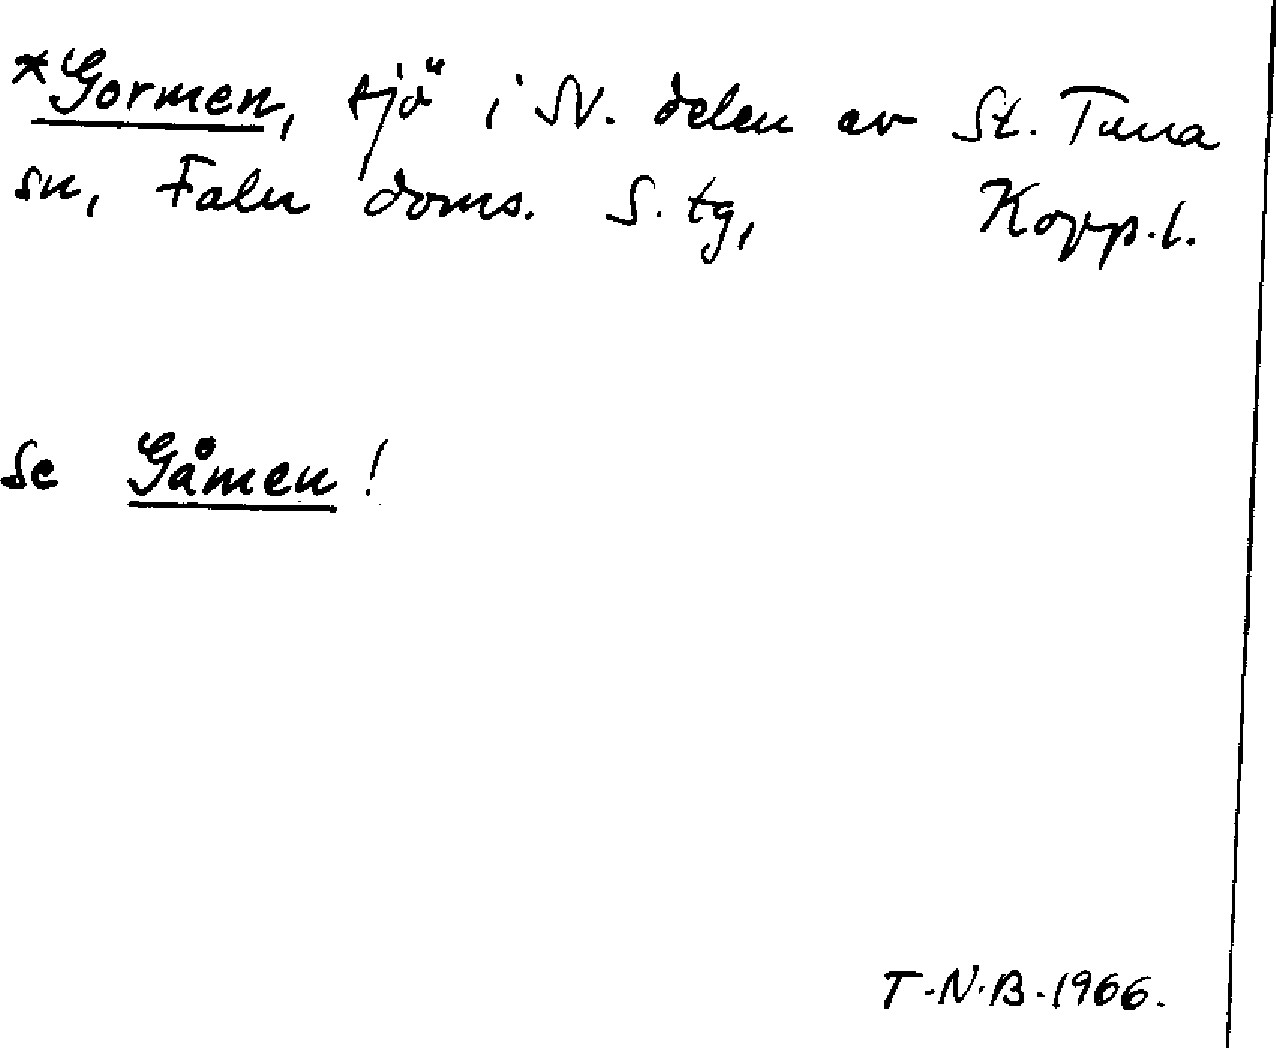 *Gormen, sjö i SV. delen av St. Tuna
sn, Falu doms. S. tg, Kopp.l.
se Gåmen!
T.N.B. 1966.